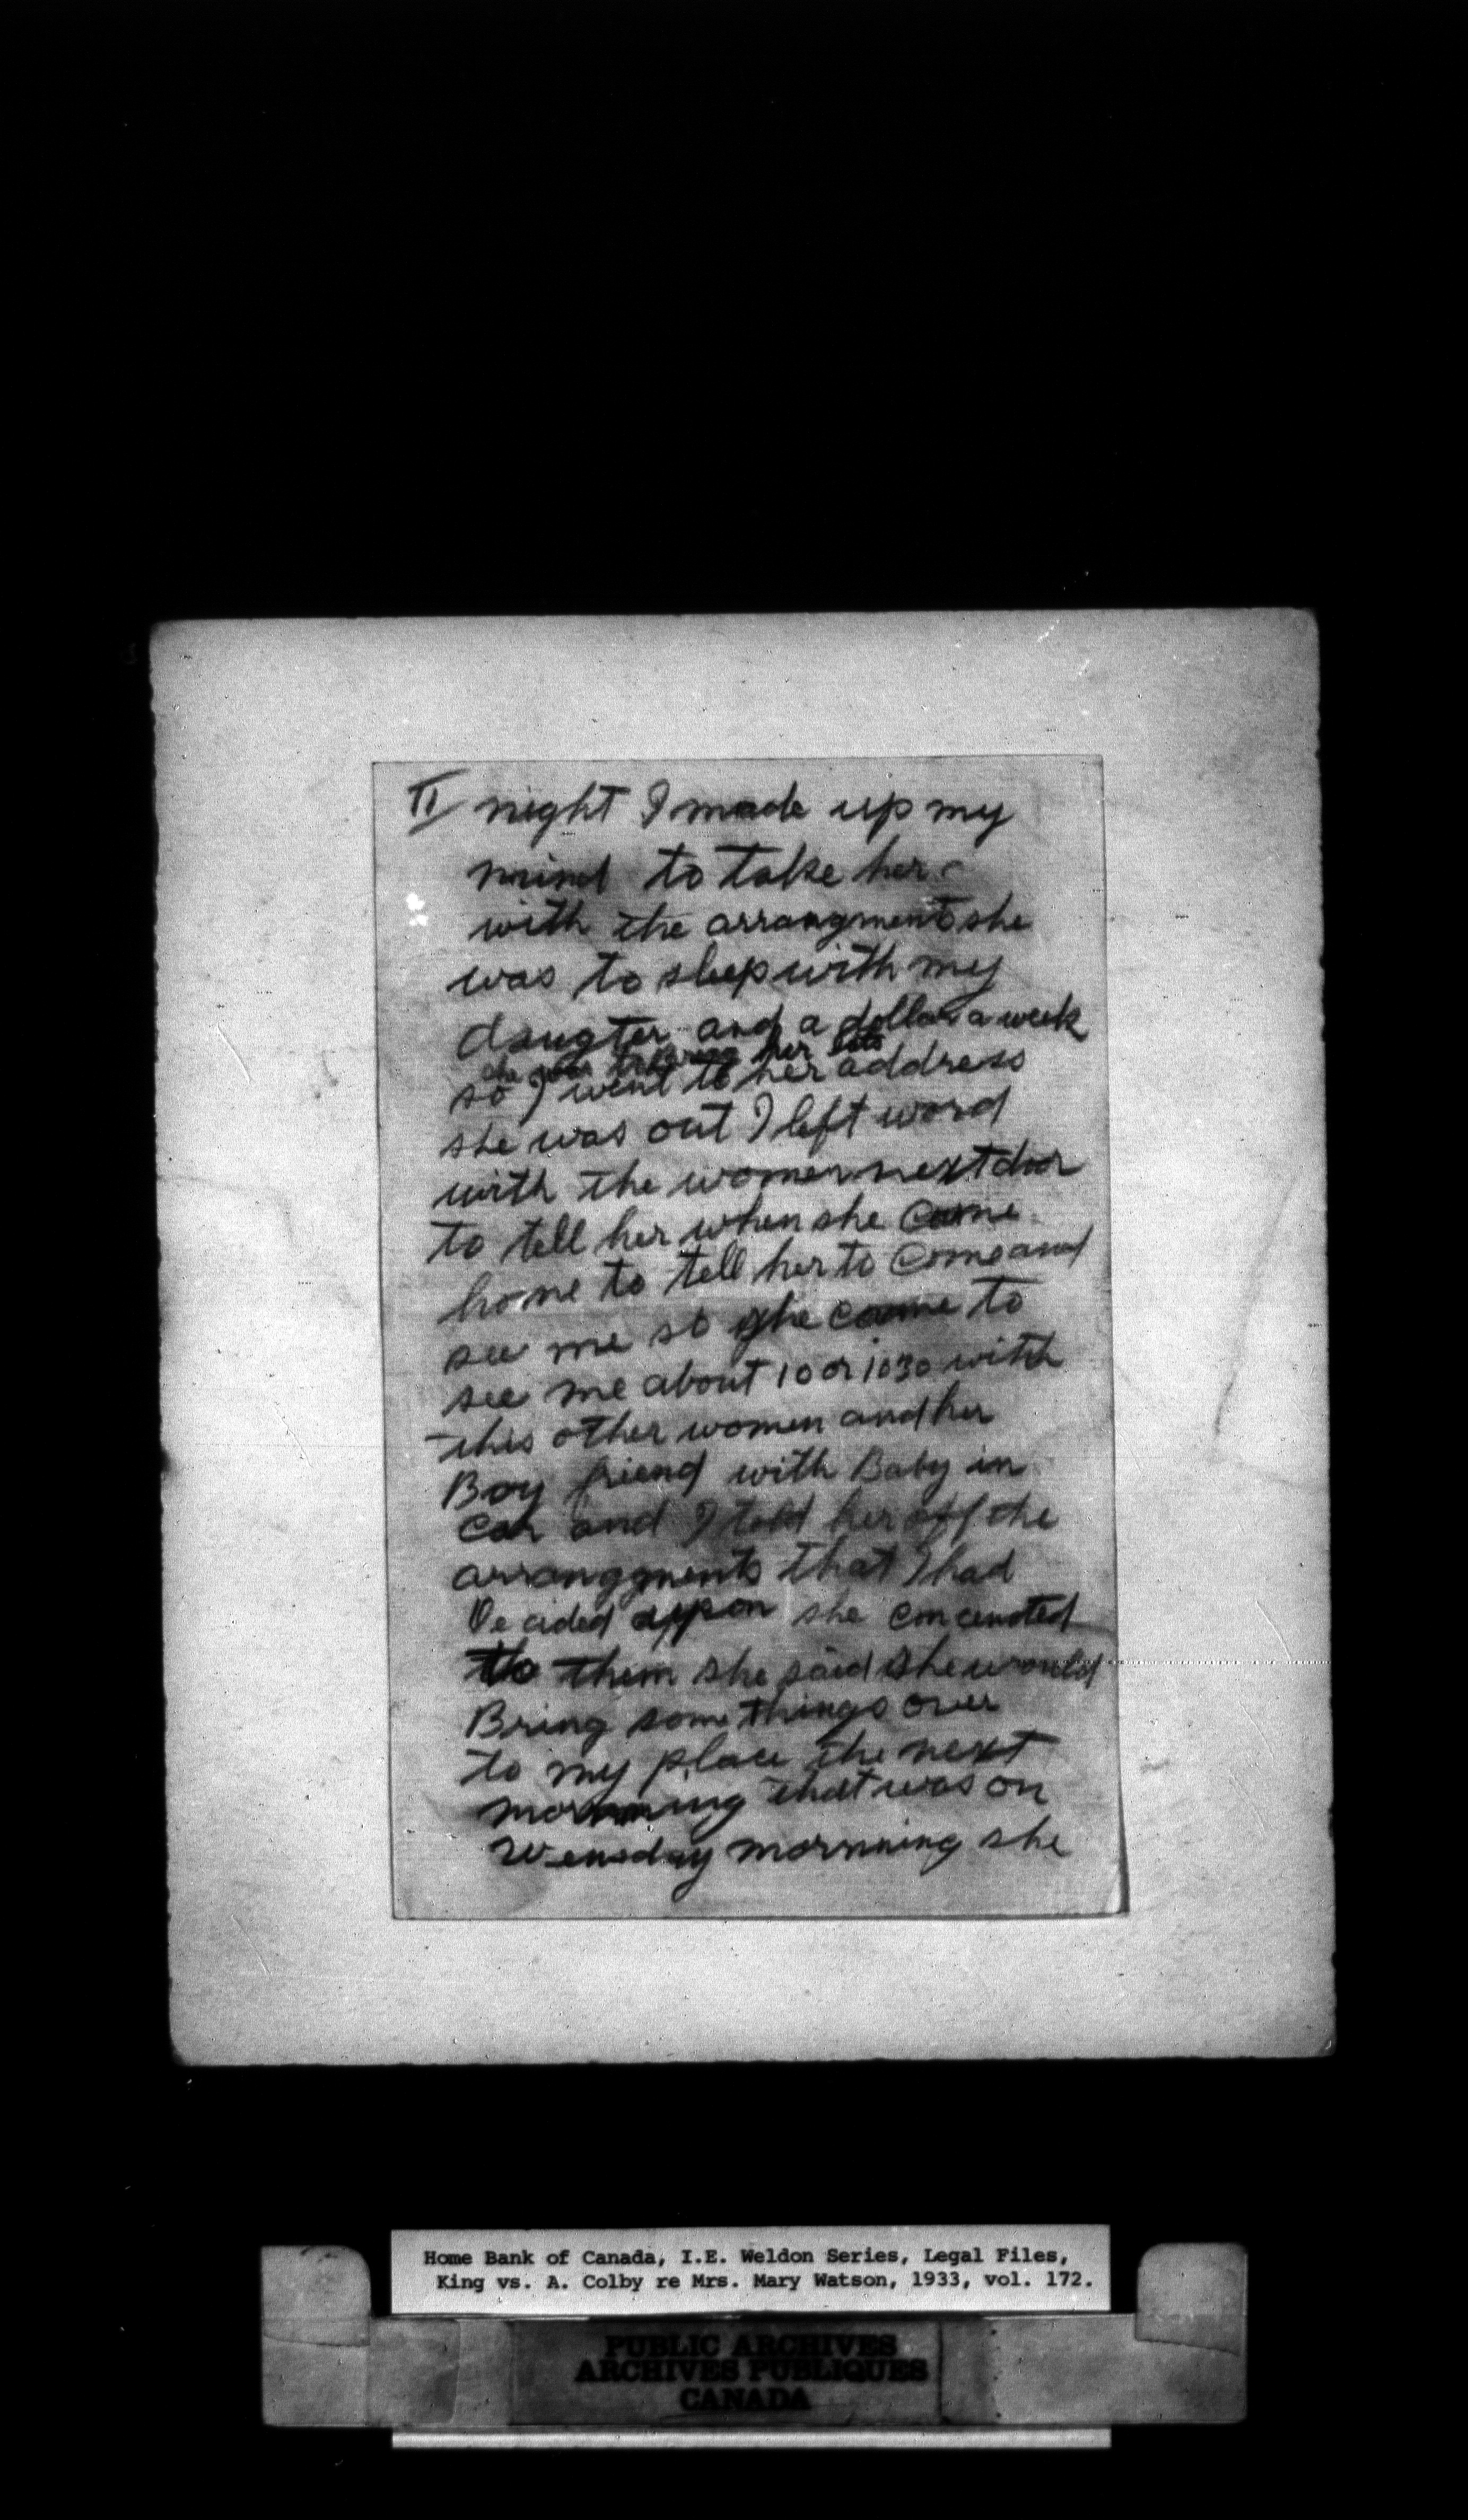 II night I made up my
mind to take her
with the arrangment she
was to sleep with my
daugter and a dollar a week
she was her
so I went to her address
she was out I left word
with the women next door
to tell her when she came
home to tell her to come and
see me so she came to
see me about 10 or 1030 with
this other women and her
Boy friend with Baby in
car and I told her off the
arrangments that I had
Decided appon she concented
to them she said she would
Bring some things over
to my place the next
mornning that was on
Wensday mornning she
Home Bank of Canada, I.E. Weldon Series, Legal Files,
King vs. A. Colby re Mrs. Mary Watson, 1933, vol. 172.
PUBLIC ARCHIVES
ARCHIVES PUBLIQUES
CANADA